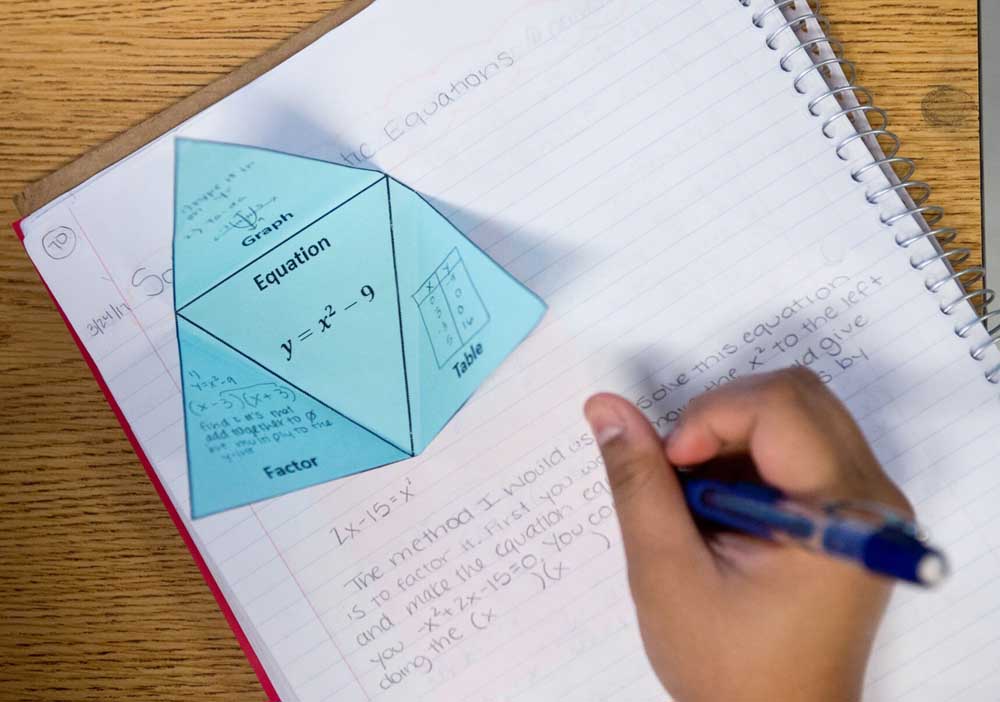 70
3/24/17
So
tic Equations
Graph
Equation
y = x² − 9
x y
0 -9
3 0
-3 0
5 16
Table
1)
y=x²-9
(x-3)(x+3)
find 2 #'s that
add together to 0
but multiply to the
y-int
Factor
2x-15=x²
The method I would us solve this equation
is to factor it. First you wo the x² to the left
and make the equation eq ld give
you -x²+2x-15=0. You co s by
doing the (x )(x )